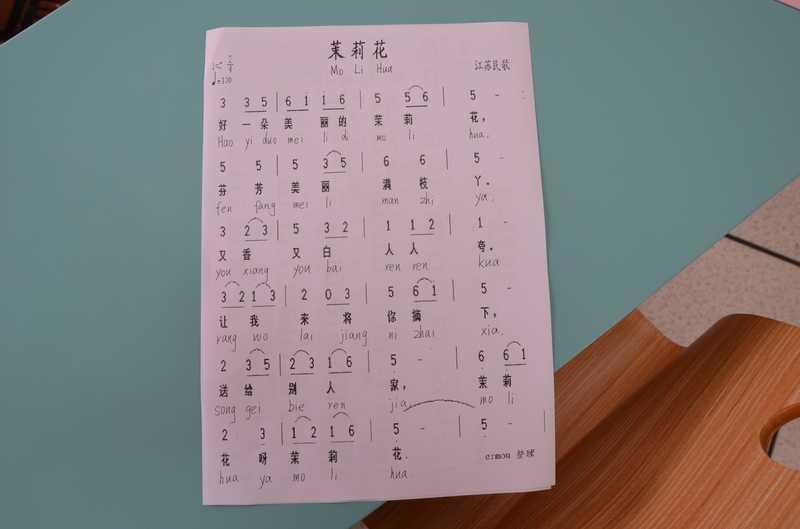 茉莉花
Mo Li Hua
江苏民歌
♩=120
3 3 5 | 6 1 1 6 | 5 5 6 | 5 -
好一朵美丽的茉莉花，
Hao yi duo mei li di mo li hua.
5 5 | 5 3 5 | 6 6 | 5 -
芬芳美丽满枝丫。
fen fang mei li man zhi ya.
3 2 3 | 5 3 2 | 1 1 2 | 1 -
又香又白人人夸。
you xiang you bai ren ren kua
3 2 1 3 | 2 0 3 | 5 6 1 | 5 -
让我来将你摘下，
rang wo lai jiang ni zhai xia.
2 3 5 | 2 3 1 6 | 5 - | 6 6 1
送给别人家，茉莉
song gei bie ren jia mo li
2 3 | 1 2 1 6 | 5 - | 5 - |
花呀茉莉花.
hua ya mo li hua.